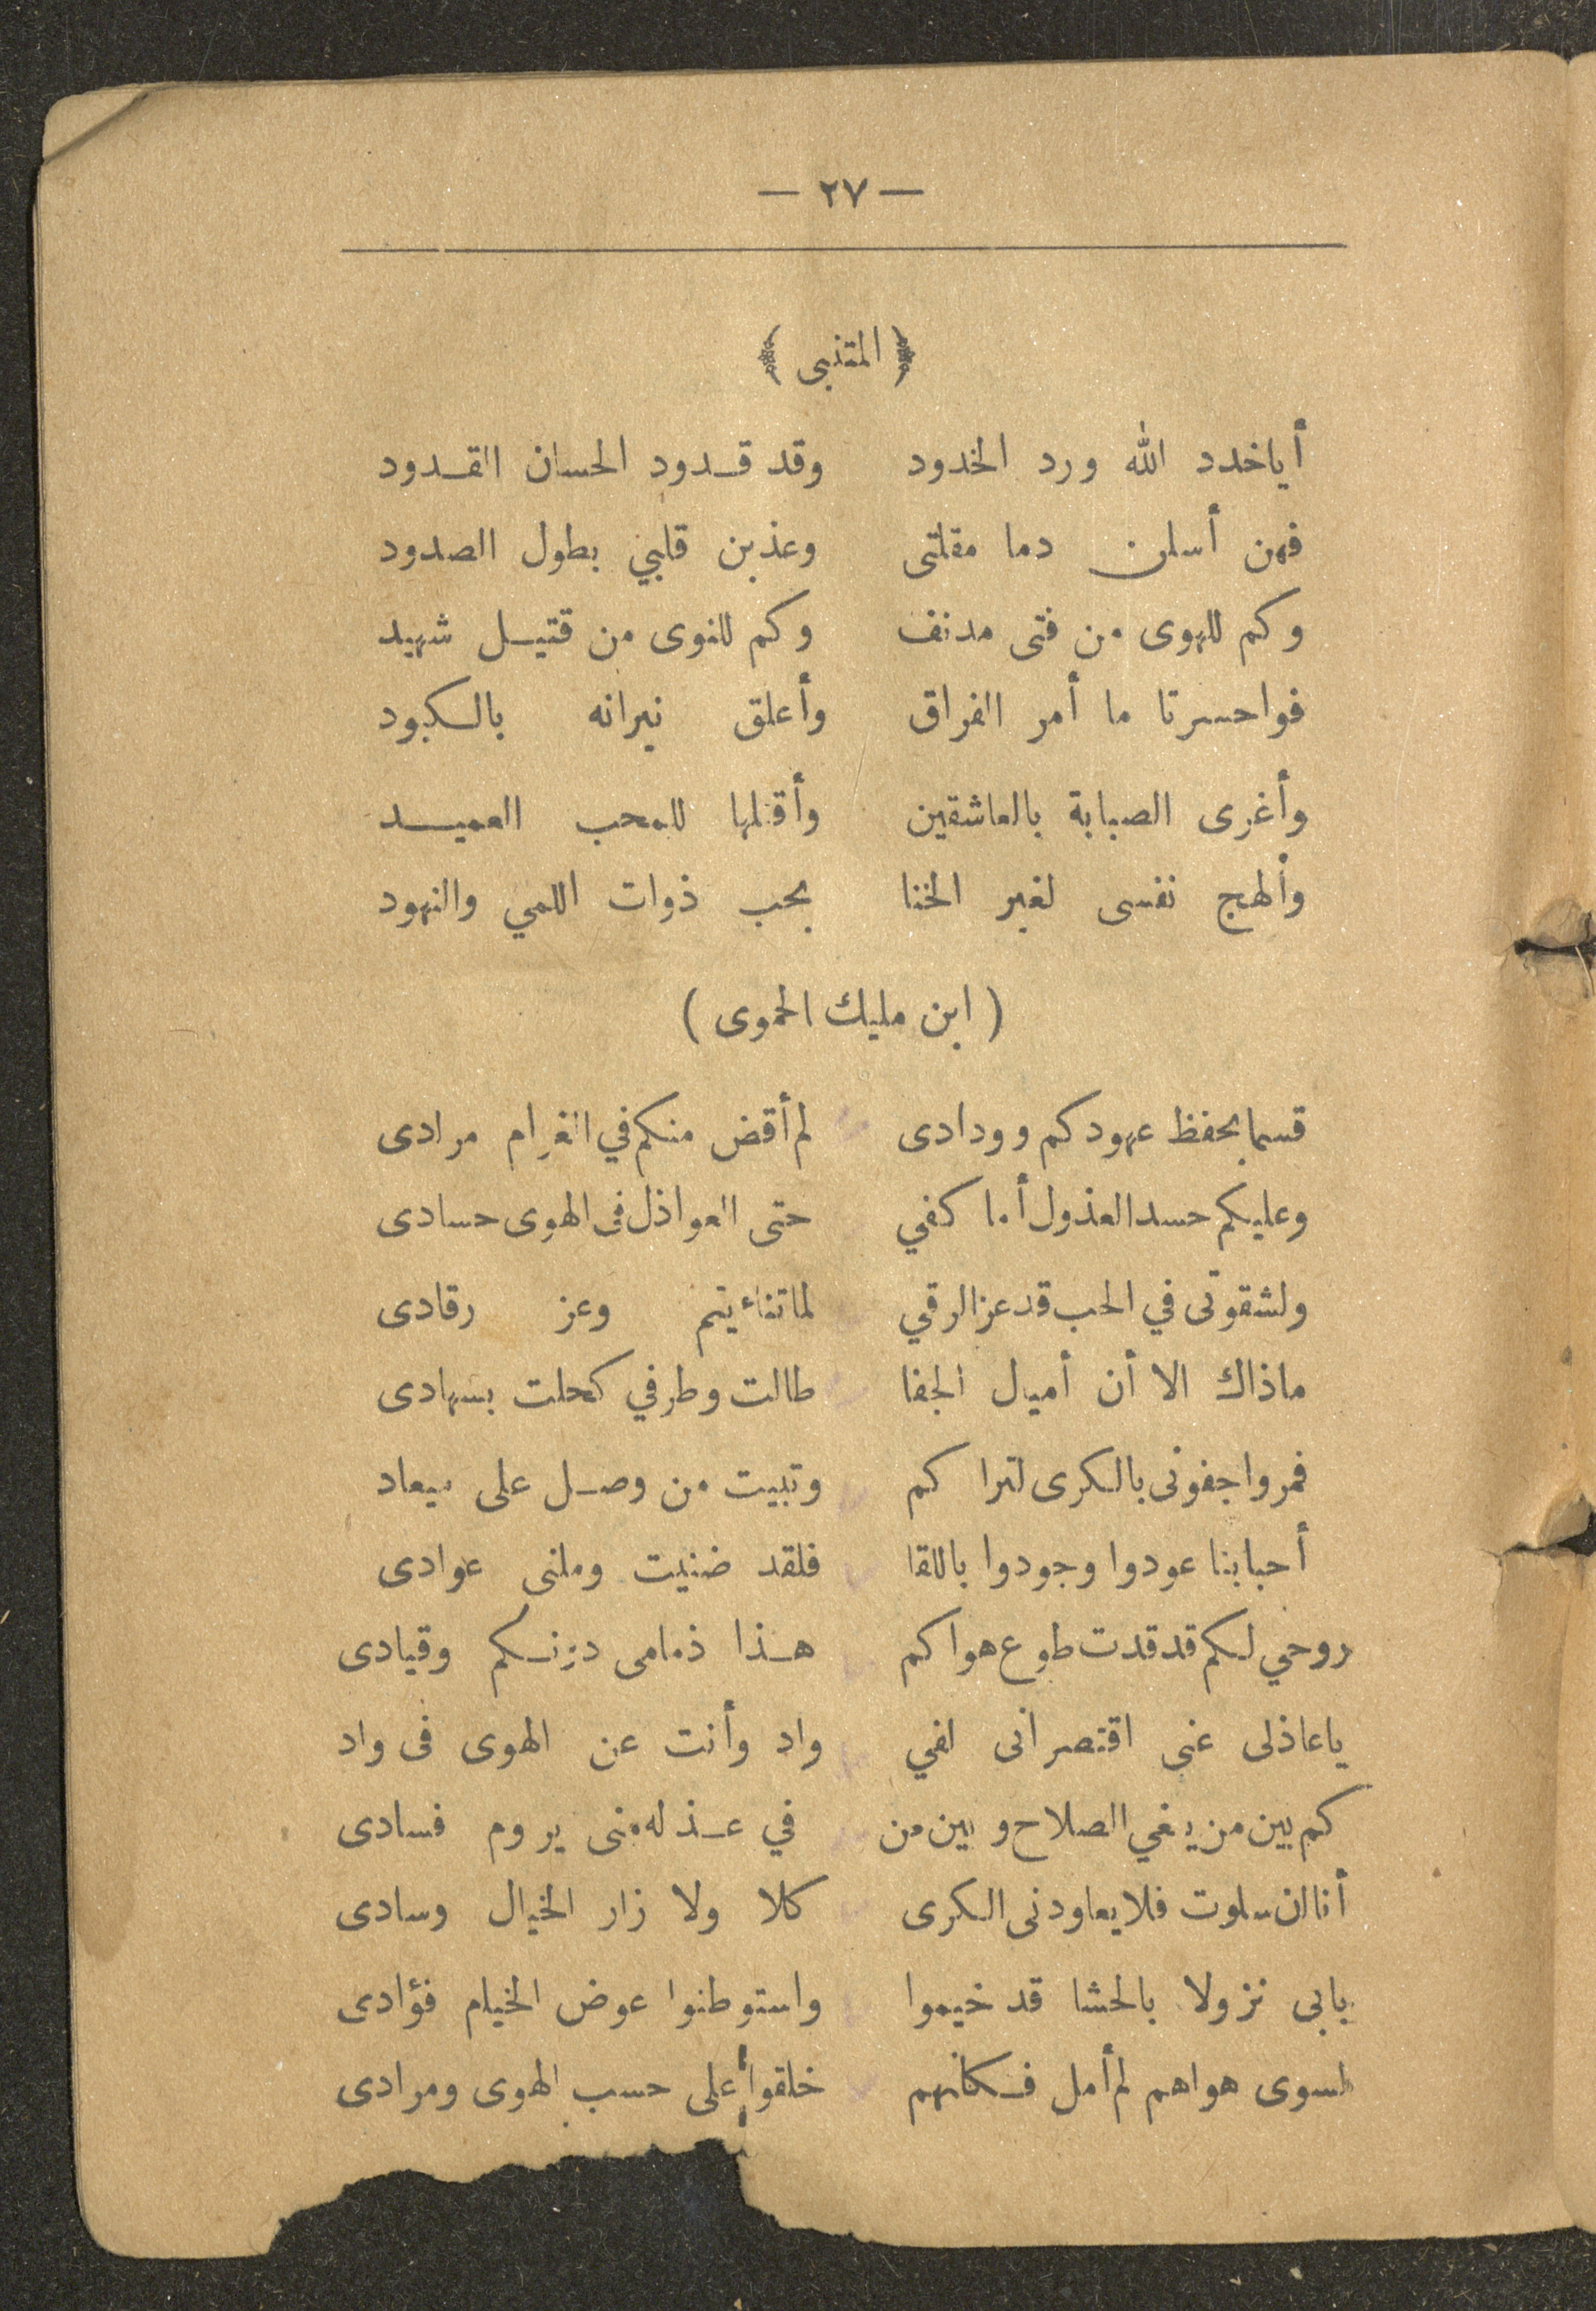 — ٢٧ —
﴿ المتنبى ﴾
أياخدد الله ورد الخدود وقد قدود الحسان القدود
فهن أسلن دما مقلتى وعذبن قلبي بطول الصدود
وكم للهوى من فتى مدنف وكم للنوى من قتيل شهيد
فواحسرتا ما أمر الفراق وأعلق نيرانه بالكبود
وأغرى الصبابة بالعاشقين وأقتلها للمحب العميد
وألهج نفسى لغير الخنا بحب ذوات اللمي والنهود
( ابن مليك الحموى )
قسما بحفظ عهودكم وودادى لم أقض منكم في الغرام مرادى
وعليكم حسد العذول أما كفي حتى العواذل فى الهوى حسادى
ولشقوتى في الحب قد عز الرقي لما تناءيتم وعز رقادى
ماذاك الا أن أميال الجفا طالت وطرفي كحلت بسهادى
فمروا جفونى بالكرى لترا كم وتبيت من وصل على ميعاد
أحبابنا عودوا وجودوا باللقا فلقد ضنيت وملنى عوادى
روحي لكم قد قدت طوع هواكم هذا ذمامى دونكم وقيادى
ياعاذلى عنى اقتصر انى لفي واد وأنت عن الهوى فى واد
كم بين من يبغي الصلاح وبين من في عذله منى يروم فسادى
أنا ان سلوت فلا يعاودنى الكرى كلا ولا زار الخيال وسادى
بابى نزولا بالحشا قد خيموا واستوطنوا عوض الخيام فؤادى
لسوى هواهم لم أمل فكانهم خلقوا على حسب الهوى ومرادى